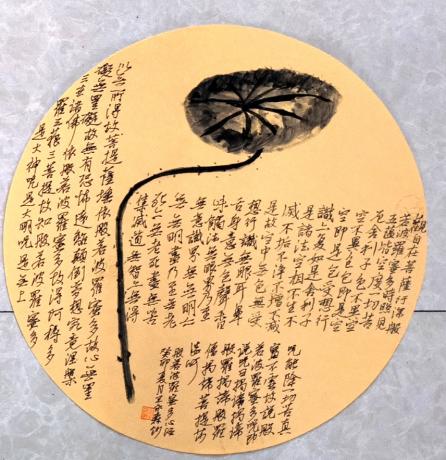 觀自在菩薩行深般
若波羅蜜多時照見
五蘊皆空度一切苦
厄舍利子色不異空
空不異色色即是空
空即是色受想行
識亦復如是舍利子
是諸法空相不生不
滅不垢不淨不增不減
是故空中無色無受
想行識無眼耳鼻
舌身意無色聲香
味觸法無眼界乃至
無意識界無無明亦
無無明盡乃至無老
死亦無老死盡無苦
集滅道無智亦無得
以無所得故菩提薩埵依般若波羅蜜多故心無罣
礙無罣礙故無有恐怖遠離顛倒夢想究竟涅槃
三世諸佛依般若波羅蜜多故得阿耨多
羅三藐三菩提故知般若波羅蜜多
是大神咒是大明咒是無上
咒能除一切苦真
實不虛故說般
若波羅蜜多咒即
說咒曰揭諦揭諦
般羅揭諦般羅
僧揭諦菩提娑
婆訶
般若波羅蜜多心經
癸卯夏月王